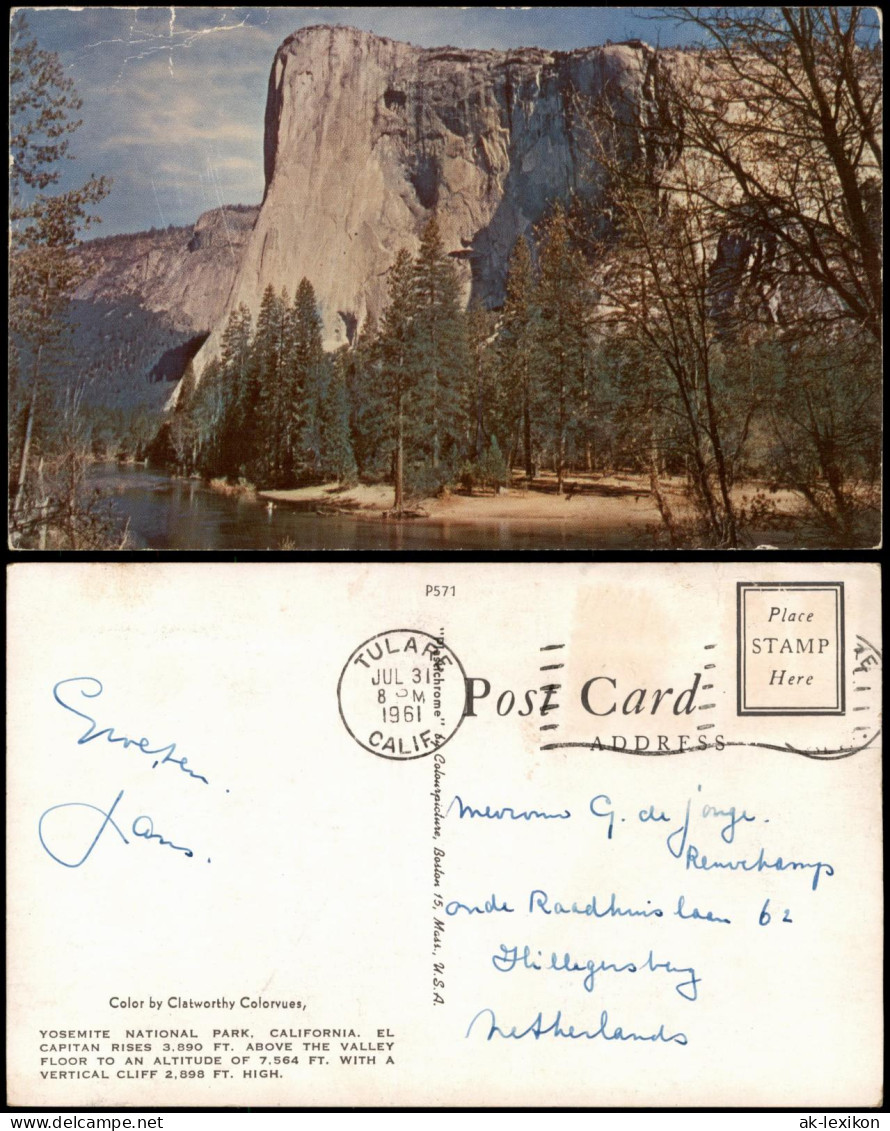 P571
TULARE
JUL 31
8 PM
1961
CALIF.
Place
STAMP
Here
Post Card
ADDRESS
"Plastichrome" by Colourpicture, Boston 15, Mass., U.S.A.
Groeten.
Hans.
Mevrouw G. de Jonge.
oude Raadhuislaan 62
Hillegersberg
Netherlands
Color by Clatworthy Colorvues,
YOSEMITE NATIONAL PARK, CALIFORNIA. EL
CAPITAN RISES 3,890 FT. ABOVE THE VALLEY
FLOOR TO AN ALTITUDE OF 7,564 FT. WITH A
VERTICAL CLIFF 2,898 FT. HIGH.
ak-lexikon